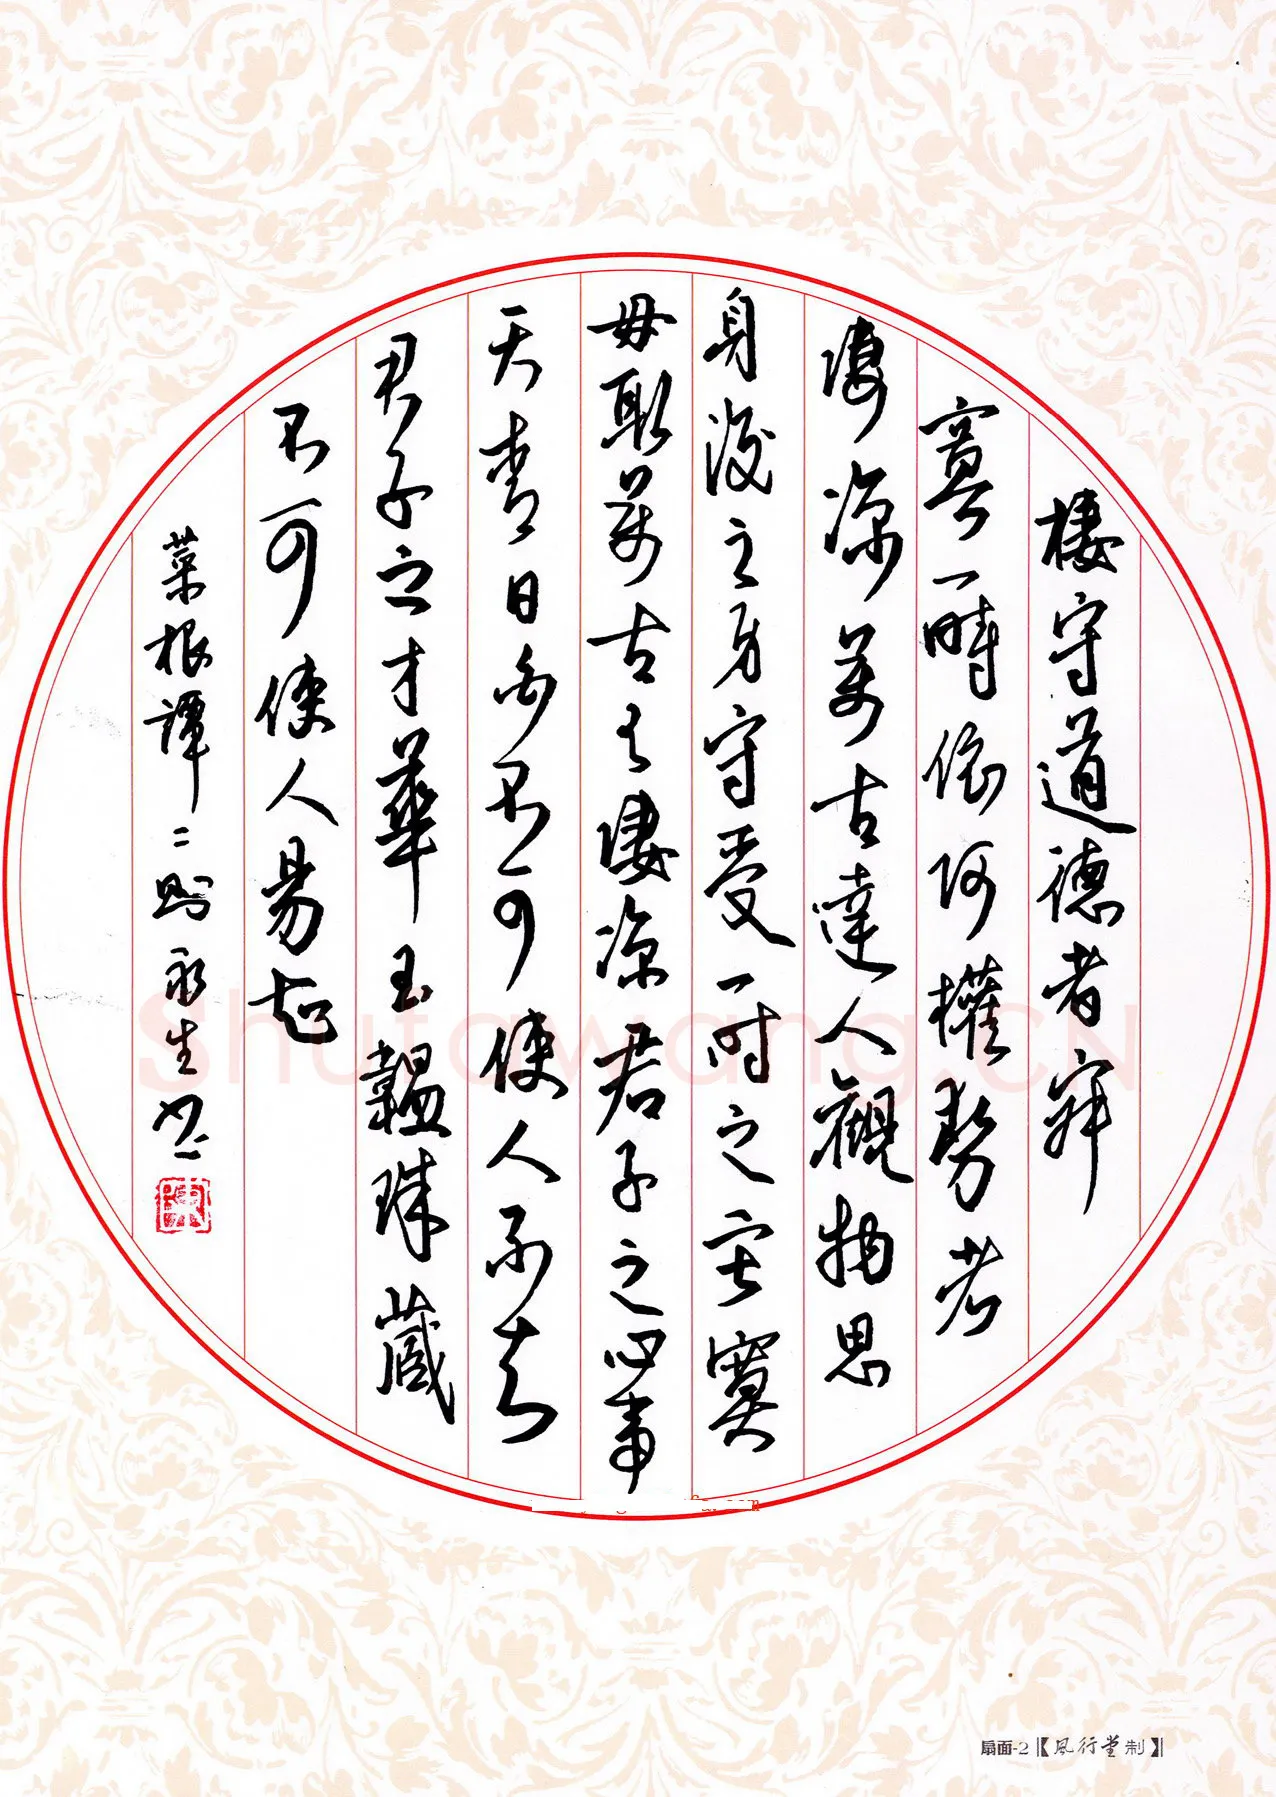 棲守道德者寂
寞一時依阿權勢者
凄涼萬古達人觀物思
身後之身守受一时之寂寞
毋取萬古之凄涼君子之心事
天青日白不可使人不知
君子之才華玉韞珠藏
不可使人易起
菜根譚二則永生书
陳
Shufawang.CN
扇面-2【風行堂制】